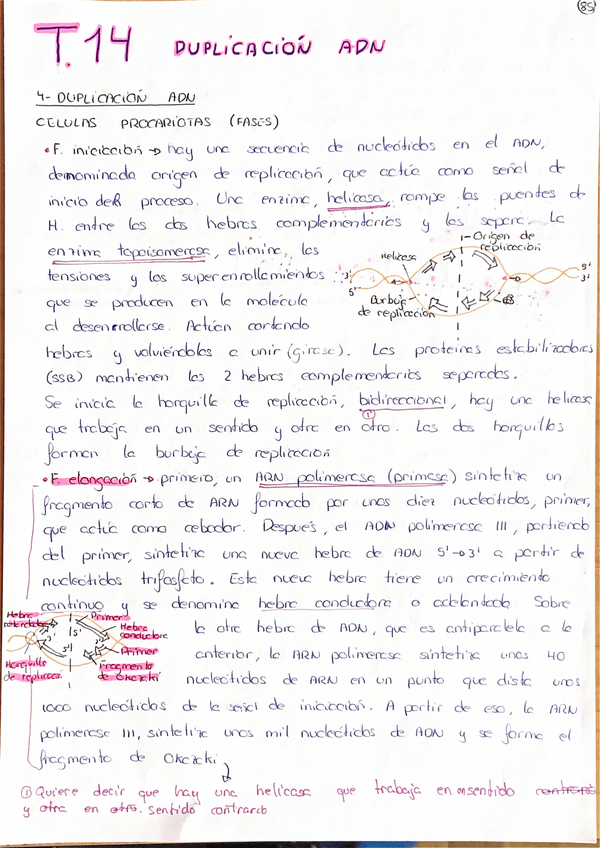 85
T.14 DUPLICACIÓN ADN
4- DUPLICACIÓN ADN
CELULAS PROCARIOTAS (FASES)
• F. inicicación → hay una secuencia de nucleótidos en el ADN,
denominada origen de replicación, que actúa como señal de
inicio del proceso. Una enzima, helicasa, rompe los puentes de
H. entre las dos hebras complementarias y las separa. La
enzima topoisomerasa, elimina, las
tensiones y los superenrollamientos
que se producen en la molécula
al desenrollarse. Actúan cortando
hebras y volviéndolas a unir (girasa). Las proteínas estabilizadoras
(SSB) mantienen las 2 hebras complementarias separadas.
Origen de
replicación
Helicasa
3'
5'
5'
3'
Burbuja
de replicación
Se inicia la horquilla de replicación, bidireccional, hay una helicasa
①
que trabaja en un sentido y otra en otro. Las dos horquillas
forman la burbuja de replicación
• F. elongación → primero, un ARN polimerasa (primasa) sintetiza un
fragmento corto de ARN formado por unos diez nucleótidos, primer,
que actúa como cebador. Después, el ADN polimerasa III, partiendo
del primer, sintetiza una nueva hebra de ADN 5'→3' a partir de
nucleótidos trifosfato. Esta nueva hebra tiene un crecimiento
continuo y se denomina hebra conductora o adelantada. Sobre
la otra hebra de ADN, que es antiparalela a la
anterior, la ARN polimerasa sintetiza unos 40
nucleótidos de ARN en un punto que dista unos
1000 nucleótidos de la señal de iniciación. A partir de eso, la ARN
polimerasa III, sintetiza unos mil nucleótidos de ADN y se forma el
fragmento de Okazaki
Hebra
retardada
Primer
Hebra
conductora
Primer
Fragmento
de Okazaki
Horquilla
de replicación
① Quiere decir que hay una helicasa que trabaja en un sentido
y otra en otro. sentido contrario